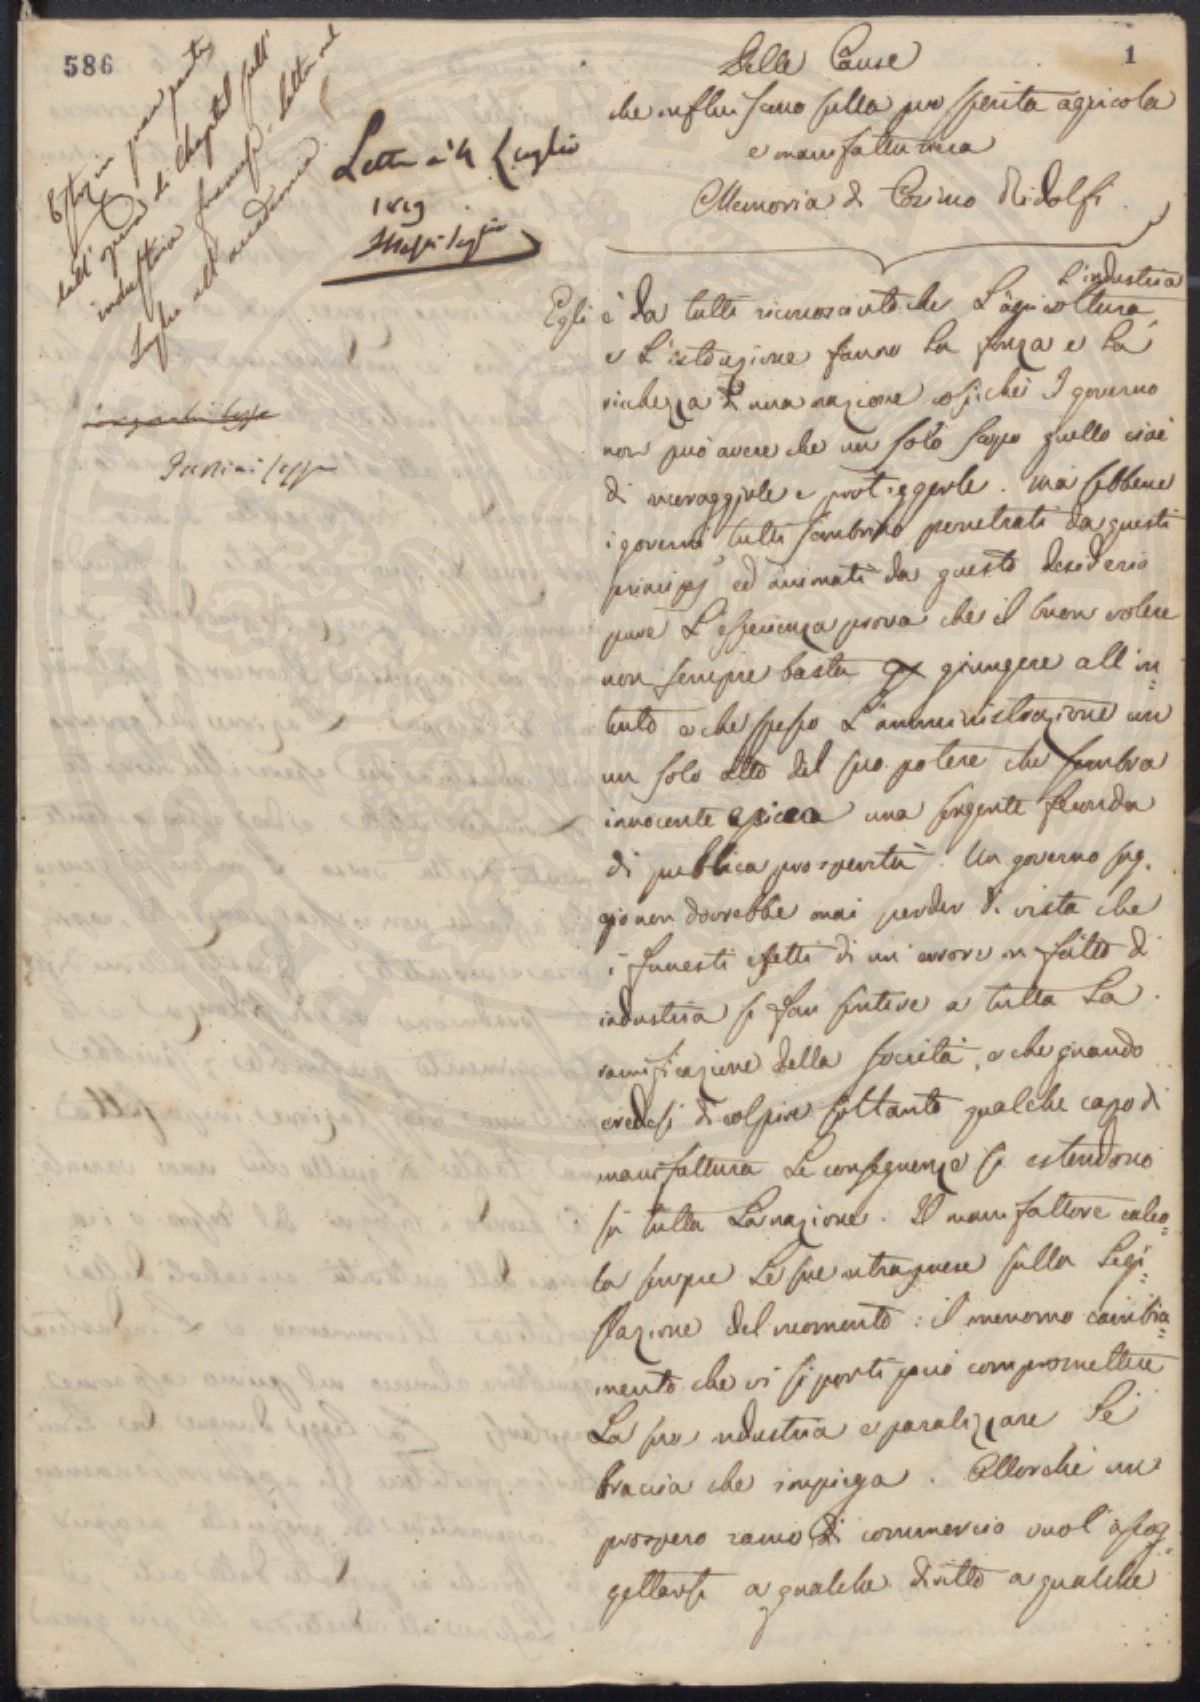 586
1
Delle Cause
che influiscano sulla prosperità agricola
e manifatturiera
Memoria di Cosimo Ridolfi
Estr. in gran parte
dall' opera di Chaptal sull'
industria francese. Letta nel
Luglio all' accademia
Letta a' 4 Luglio
1819
L'industria
Egli è da tutti riconosciuto che L'agricoltura,
e L'istruzione fanno La forza e La
richezza d'una nazione cosicchè I governo
non può avere che un solo scopo quello cioè
di incoraggirle e proteggerle. Ma sebbene
i governi tutti sembrino penetrati da questi
principj ed animati da questo desiderio
pure L'esperienza prova che il buon volere
non sempre basta a giungere all'in=
tento e che spesso L'amministrazione con
un solo atto del suo potere che sembra
innocente una sorgente feconda
di pubblica prosperità. Un governo sag.
gio non dovrebbe mai perder di vista che
i funesti effetti di un errore in fatto d
industria si fan sentire a tutta La
ramificazione della società, e che quando
credesi di colpire soltanto qualche capo di
manifattura Le conseguenze si estendono
su tutta La nazione. Il manifattore calco=
la sempre Le sue intraprese sulla Legi=
slazione del momento: il menomo cambia=
mento che vi si porti può compromettere
La sua industria e paralizzare Le
braccia che impiega. Allorchè un
prospero ramo di commercio vuol assog=
gettarsi a qualche dritto a qualche